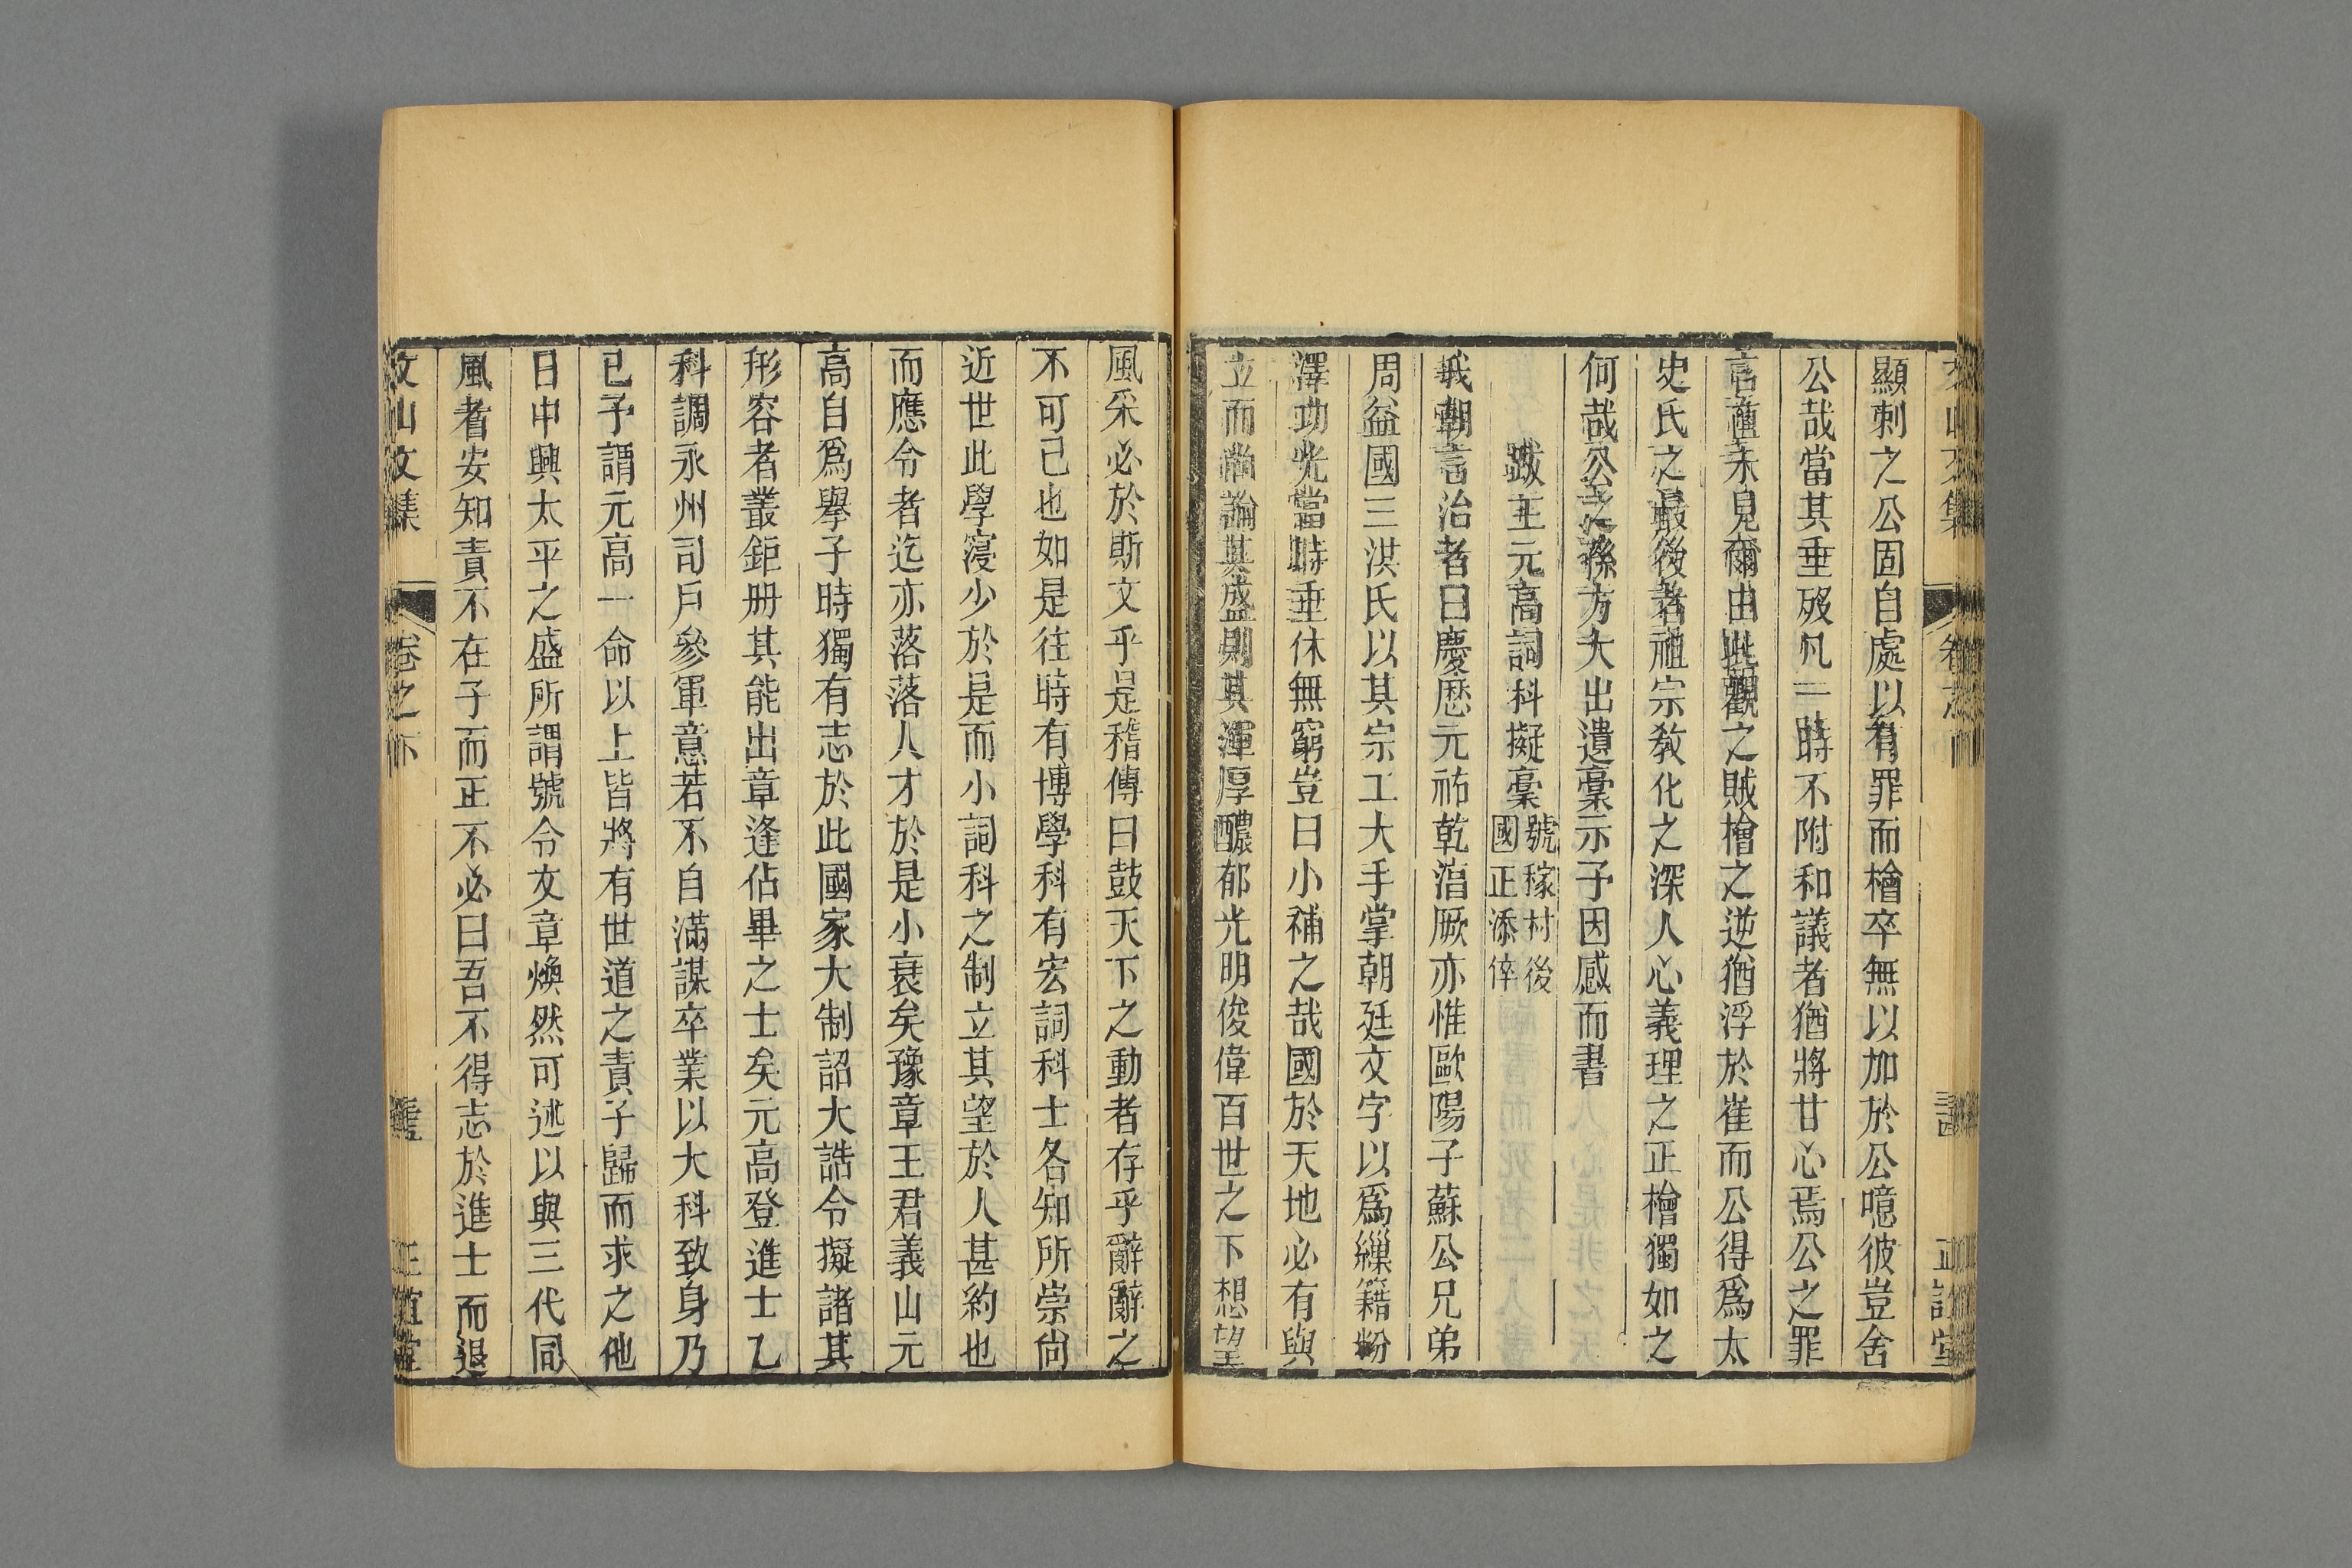 顯刺之公固自處以有罪而檜卒無以加於公噫彼豈舍
公哉當其垂歿凡一時不附和議者猶將甘心焉公之罪
言適未見爾由此觀之賊檜之逆猶浮於崔而公得爲太
史氏之最後者祖宗教化之深人心義理之正檜獨如之
何哉公之孫方大出遺稾示予因感而書
跋王元高詞科擬稾
號稼村後
國正添倅
我朝言治者曰慶歴元祐乾淳厥亦惟歐陽子蘇公兄弟
周益國三洪氏以其宗工大手掌朝廷文字以爲繅籍粉
澤功光當時垂休無窮豈曰小補之哉國於天地必有與
立而尚論其盛則其渾厚醲郁光明俊偉百世之下想望
風采必於斯文乎是稽傳曰鼓天下之動者存乎辭辭之
不可已也如是往時有博學科有宏詞科士各知所崇尚
近世此學寖少於是而小詞科之制立其望於人甚約也
而應令者迄亦落落人才於是小衰矣豫章王君義山元
高自爲舉子時獨有志於此國家大制詔大誥令擬諸其
形容者叢鉅册其能出章逢佔畢之士矣元高登進士乙
科調永州司戶參軍意若不自滿謀卒業以大科致身乃
已予謂元高一命以上皆將有世道之責子歸而求之他
日中興太平之盛所謂號令文章煥然可述以與三代同
風者安知責不在子而正不必曰吾不得志於進士而退
文山文集
卷之下
正誼堂